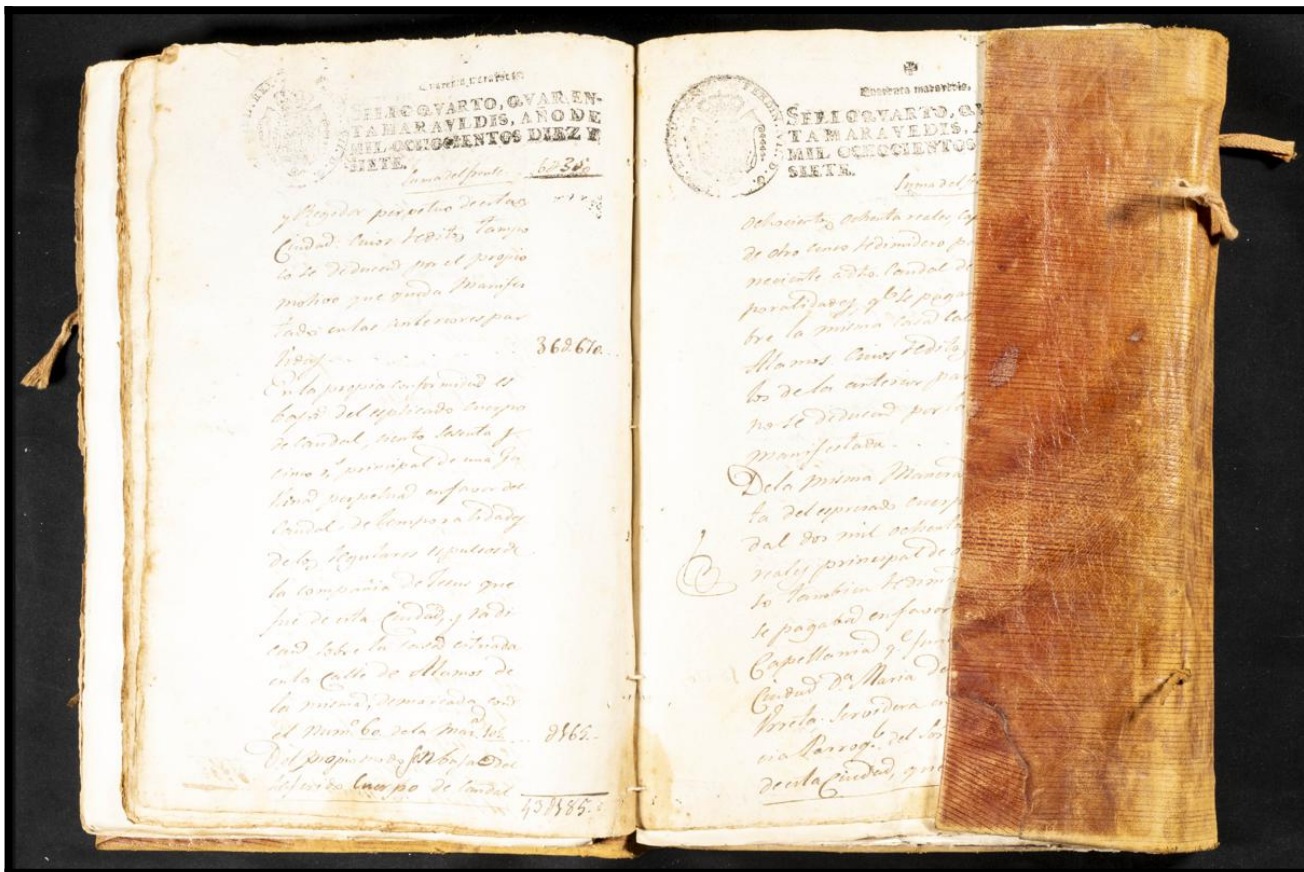 SELLO QVARTO, QVAREN-
TA MARAVEDIS, AÑO DE
MIL OCHOCIENTOS DIEZ Y
SIETE.
Suma del frente
y Regidor perpetuo de esta
Ciudad: cuios reditos tampo
co se deducen por el propio
motivo que queda manifes
tado en las anteriores par
tidas 36d.670.
En la propia conformidad es
baja del esplicado cuerpo
de caudal, ciento sesenta y
cinco rs. principal de una Ga
llina perpetua en favor del
Caudal de temporalidades
de los Regulares espulsos de
la compañia de Jesus que
fue de esta Ciudad, y radi
can sobre la casa situada
en la Calle de Alamos de
la misma, demarcada con
el num.º 60 de la man.ª 102. d165.
Del propio modo son baja del
referido cuerpo de caudal
43d185.
Quarenta maravedis.
SELLO QVARTO, Q
TA MARAVEDIS, A
MIL OCHOCIENTOS
SIETE.
Suma del f
ochocientos ochenta reales, cap
de otro censo redimidero pe
neciente a dho. Caudal de
poralidades, q.e se pagan
bre la misma casa call
Alamos, cuios reditos
los de la anterior par
no se deducen por la
manifestada.
De la misma manera
ta del espresado cuerp
dal dos mil ochenta
reales principal de o
so tambien redimi
se pagaba en favor
Capellania q.e fun
Ciudad D.ª Maria de
Urrela, servidera en
cia Parroq.l del Sor
de esta Ciudad, que